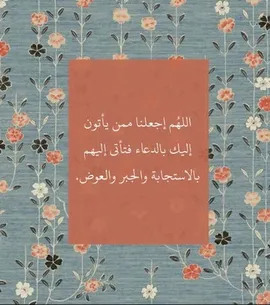 اللهُم إجعلنا ممن يأتون
إليك بالدعاء فتأتى إليهم
بالاستجابة والجبر والعوض.